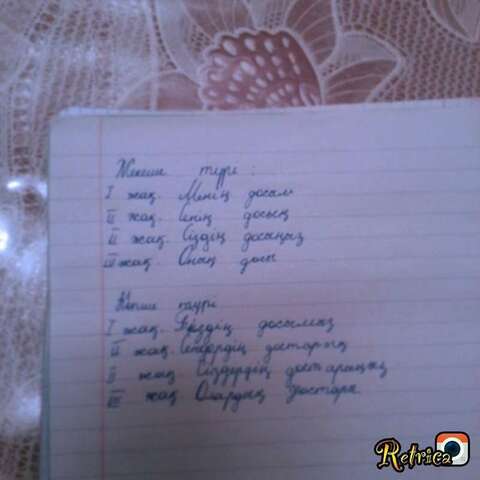 Жекше түрі:
I жақ. Менің досым
II жақ. Сенің досың
II жақ. Сіздің досыңыз
III жақ. Оның досы
Көпше түрі
I жақ. Біздің досымыз
II жақ. Сендердің достарың
II жақ Сіздердің достарыңыз
III жақ Олардың достары
Retrica